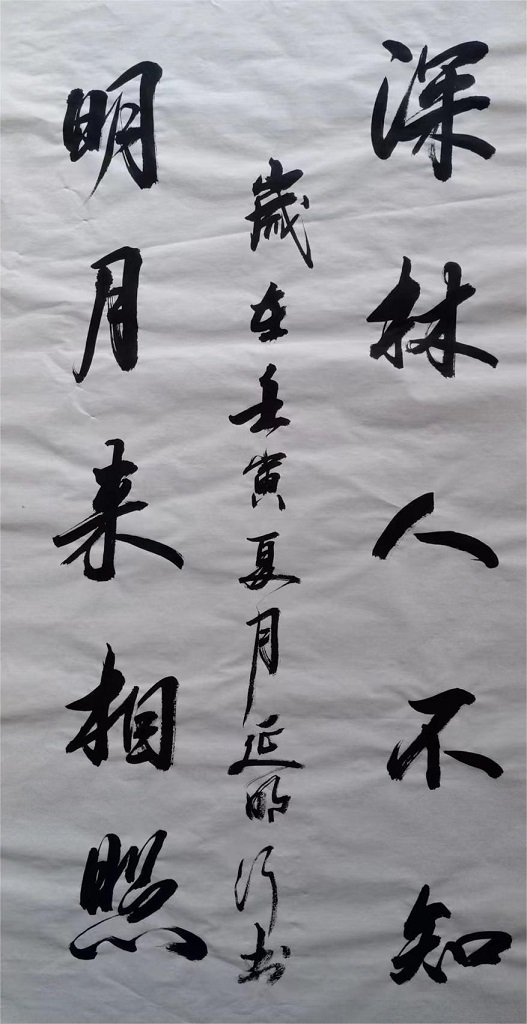 深林人不知
明月来相照
歲在壬寅夏月延明行书